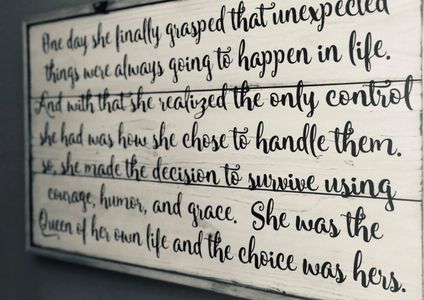 One day she finally grasped that unexpected
things were always going to happen in life.
And with that she realized the only control
she had was how she chose to handle them.
so, she made the decision to survive using
courage, humor, and grace. She was the
Queen of her own life and the choice was hers.